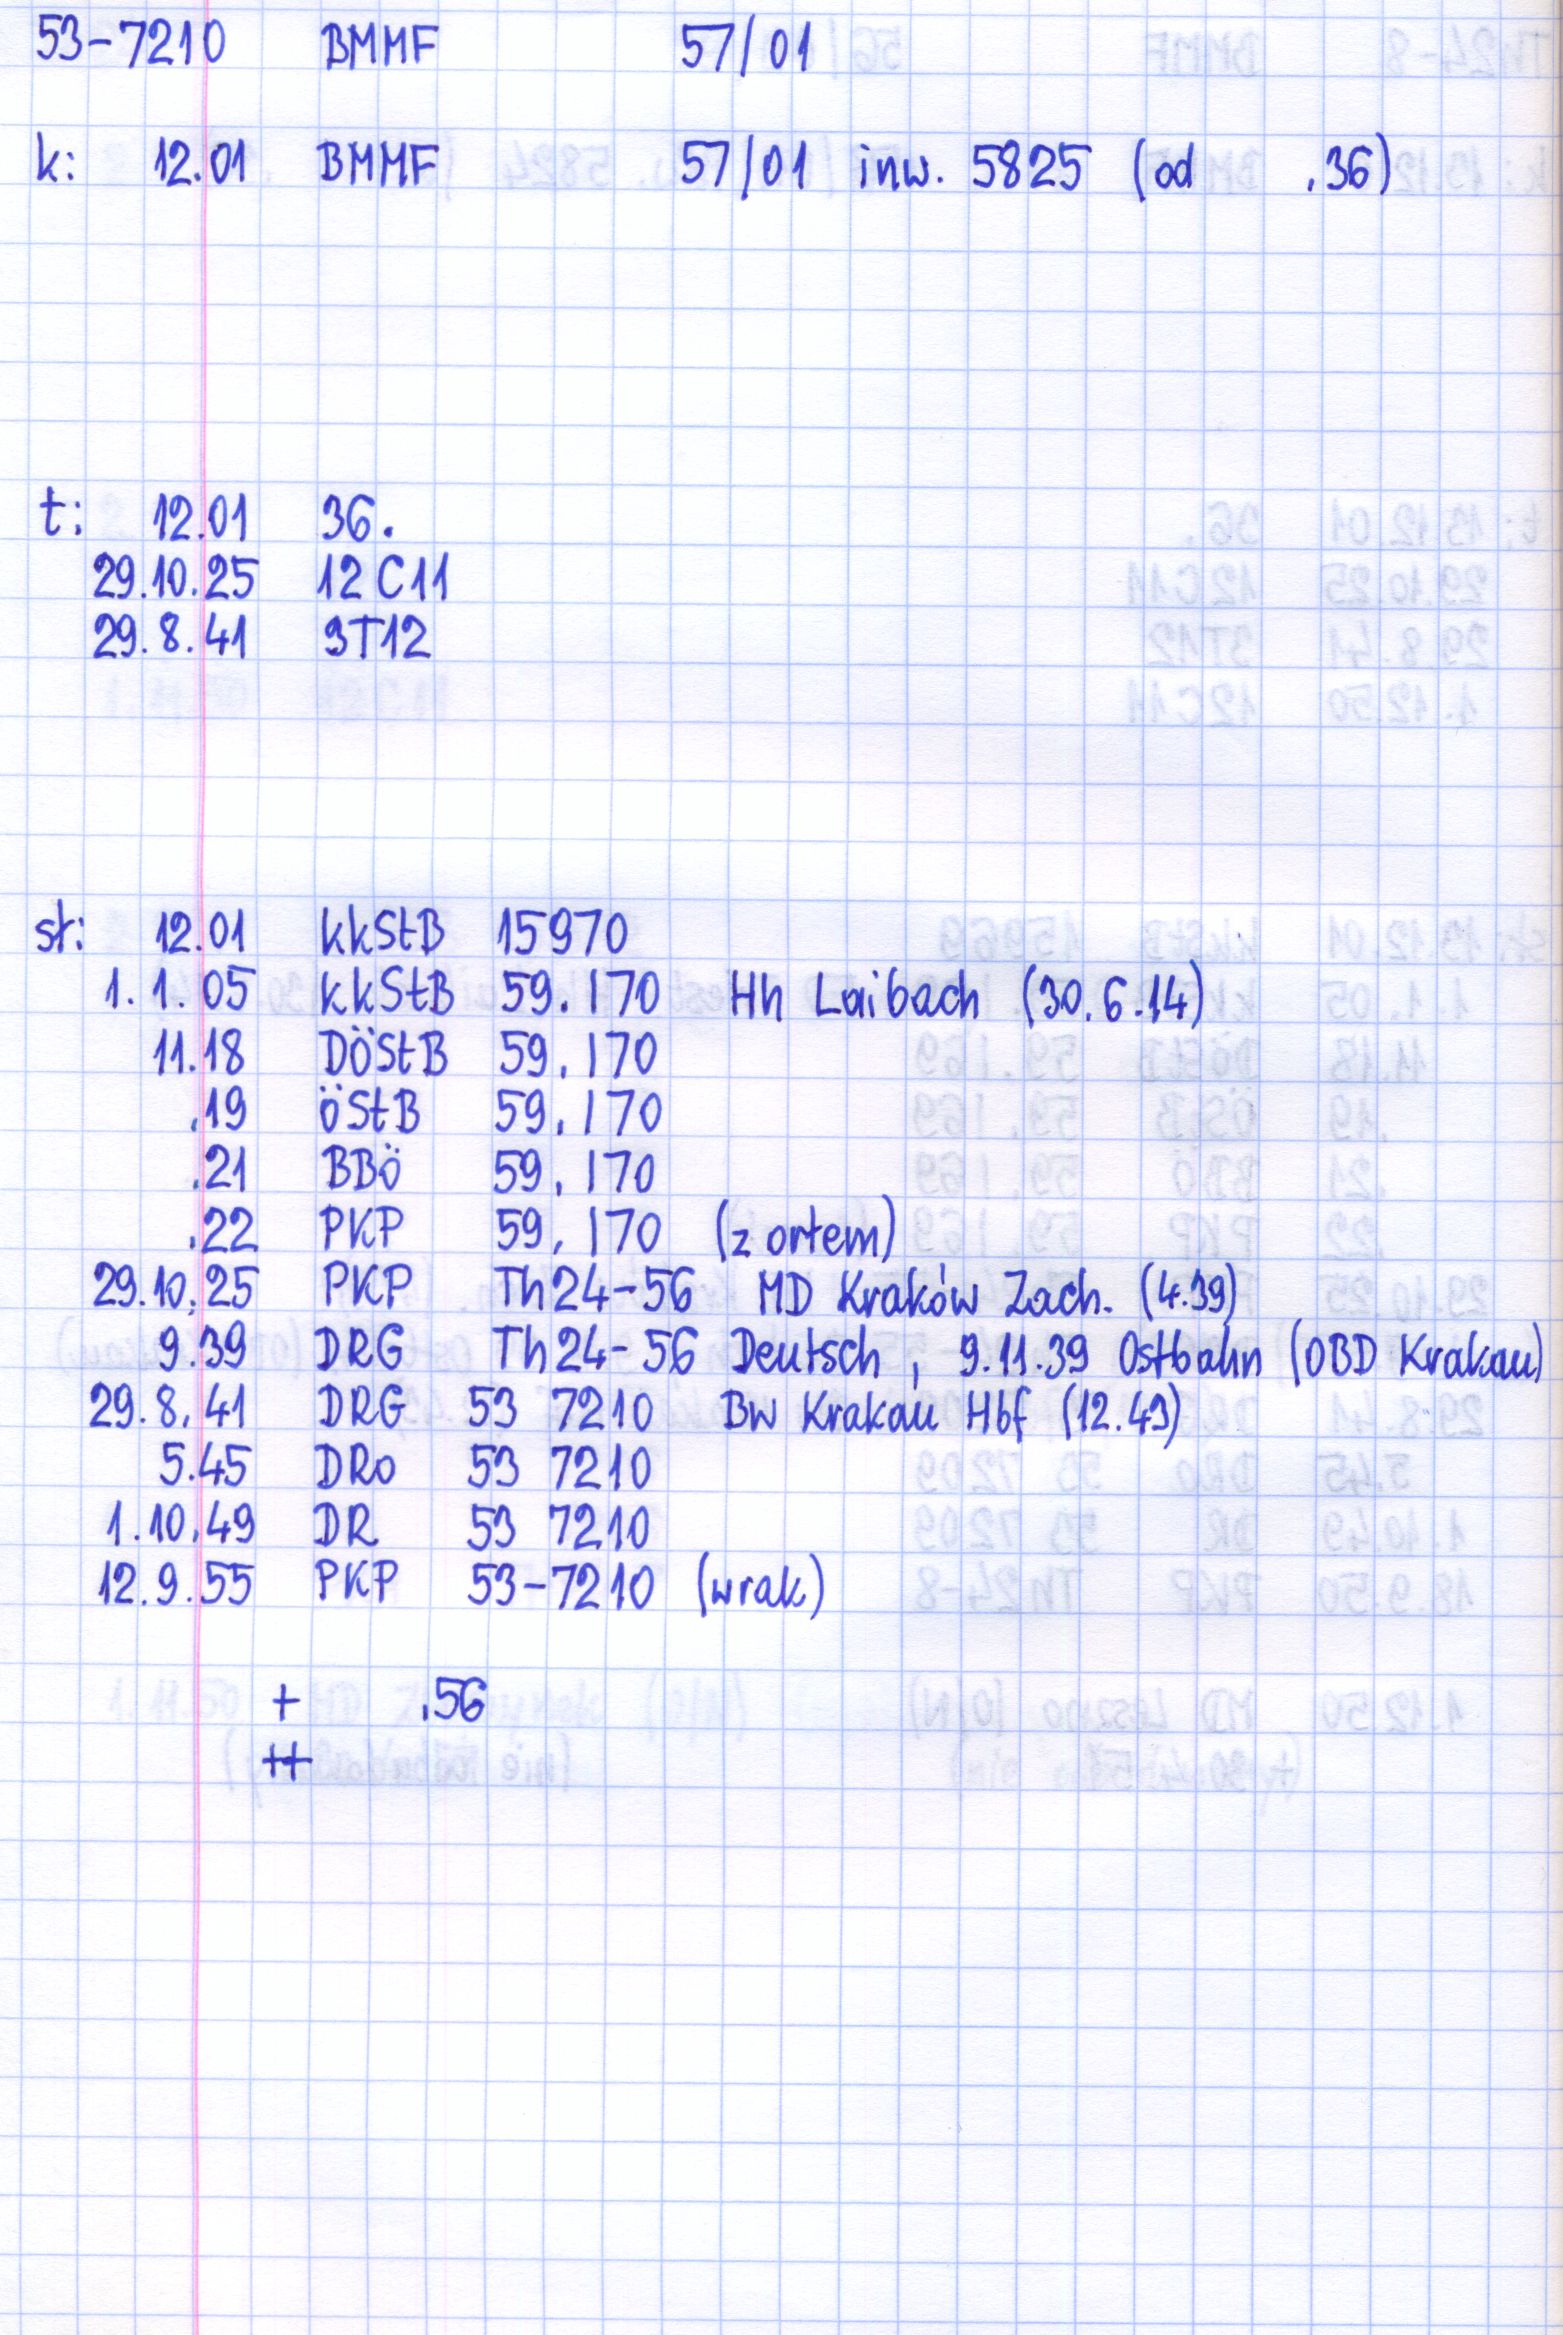 53-7210 BMMF 57/01
k: 12.01 BMMF 57/01 inw. 5825 (od .36)
t: 12.01 36.
29.10.25 12C11
29.8.41 9T12
st: 12.01 kkStB 15970
1.1.05 kkStB 59.170 Hh Laibach (30.6.14)
11.18 DÖStB 59.170
.19 öStB 59.170
.21 BBö 59.170
.22 PKP 59.170 (z ortem)
29.10.25 PKP Th24-56 MD Kraków Zach. (4.39)
9.39 DRG Th24-56 Deutsch, 9.11.39 Ostbahn (OBD Krakau)
29.8.41 DRG 53 7210 Bw Krakau Hbf (12.43)
5.45 DRo 53 7210
1.10.49 DR 53 7210
12.9.55 PKP 53-7210 (wrak)
+ .56
++